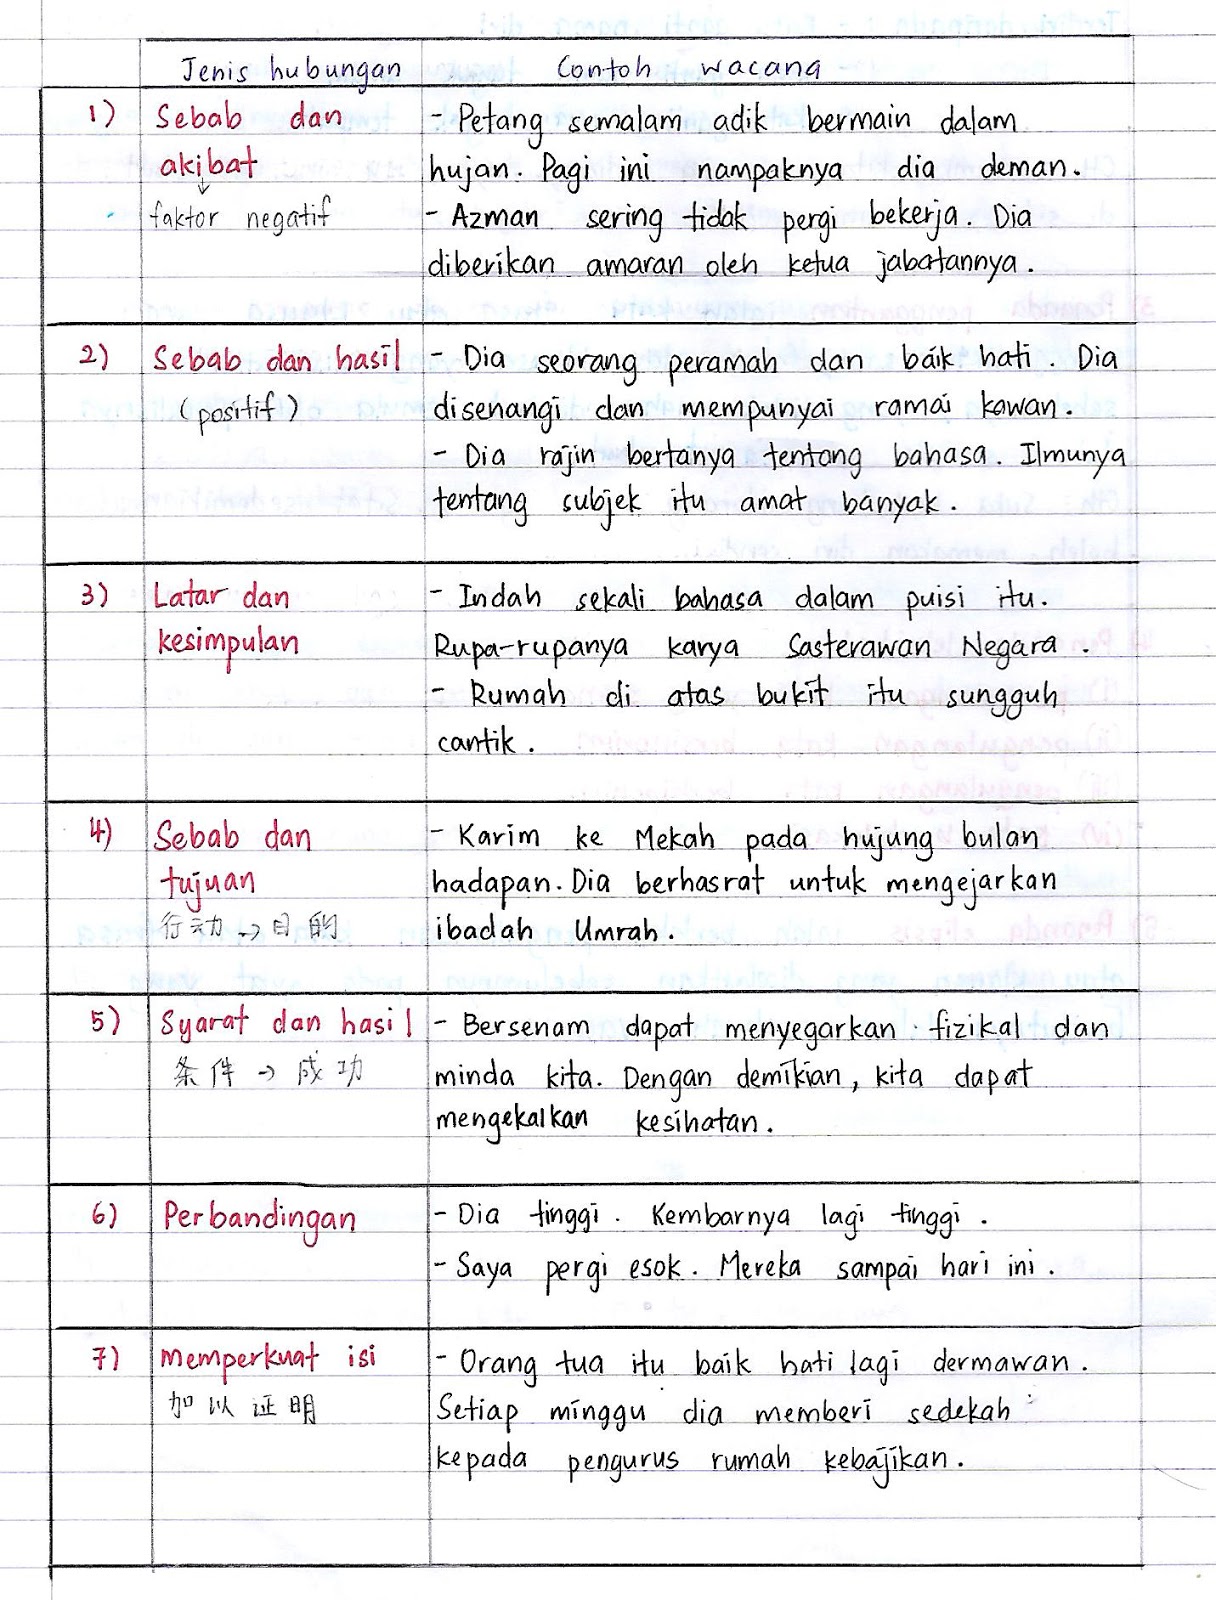 Jenis hubungan Contoh wacana
1) Sebab dan - Petang semalam adik bermain dalam
akibat hujan. Pagi ini nampaknya dia deman.
faktor negatif - Azman sering tidak pergi bekerja. Dia
diberikan amaran oleh ketua jabatannya.
2) Sebab dan hasil - Dia seorang peramah dan baik hati. Dia
(positif) disenangi dan mempunyai ramai kawan.
- Dia rajin bertanya tentang bahasa. Ilmunya
tentang subjek itu amat banyak.
3) Latar dan - Indah sekali bahasa dalam puisi itu.
kesimpulan Rupa-rupanya karya Sasterawan Negara.
- Rumah di atas bukit itu sungguh
cantik.
4) Sebab dan - Karim ke Mekah pada hujung bulan
tujuan hadapan. Dia berhasrat untuk mengejarkan
行动→目的 ibadah Umrah.
5) Syarat dan hasil - Bersenam dapat menyegarkan fizikal dan
条件→成功 minda kita. Dengan demikian, kita dapat
mengekalkan kesihatan.
6) Perbandingan - Dia tinggi. Kembarnya lagi tinggi.
- Saya pergi esok. Mereka sampai hari ini.
7) Memperkuat isi - Orang tua itu baik hati lagi dermawan.
加以证明 Setiap minggu dia memberi sedekah
kepada pengurus rumah kebajikan.